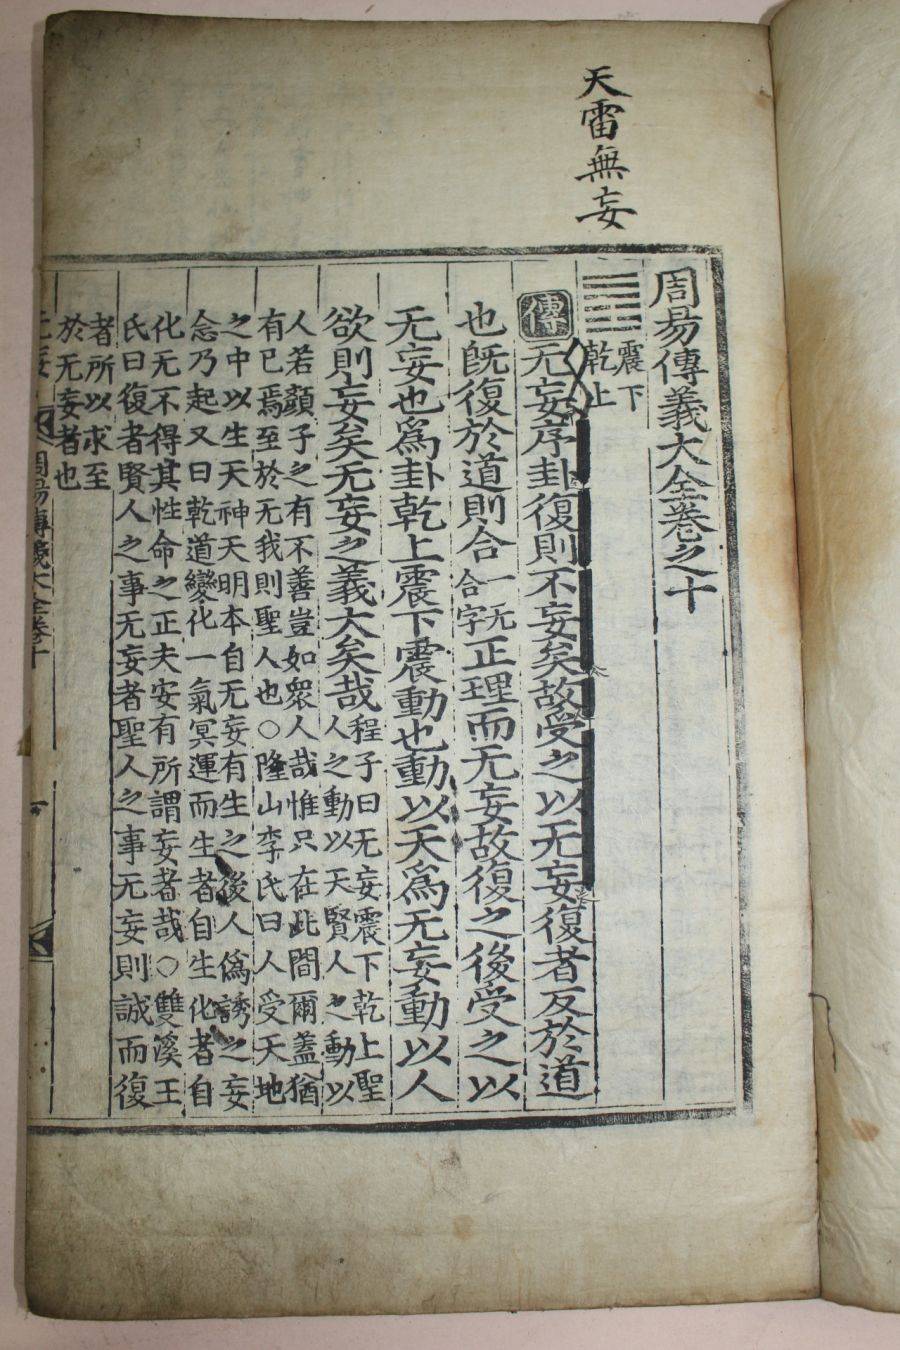 天雷無妄
周易傳義大全卷之十
震下
乾上
傳无妄序卦復則不妄矣故受之以无妄復者反於道
也旣復於道則合一无合字正理而无妄故復之後受之以
无妄也爲卦乾上震下震動也動以天爲无妄動以人
欲則妄矣无妄之義大矣哉
程子曰无妄震下乾上聖
人之動以天賢人之動以
人若顔子之有不善豈如衆人哉惟只在此間爾蓋猶
有已焉至於无我則聖人也○隆山李氏曰人受天地
之中以生天神天明本自无妄有生之後人僞誘之妄
念乃起又曰乾道變化一氣冥運而生者自生化者自
化无不得其性命之正夫安有所謂妄者哉○雙溪王
氏曰復者賢人之事无妄者聖人之事无妄則誠而復
者所以求至
於无妄者也
周易傳義大全卷十